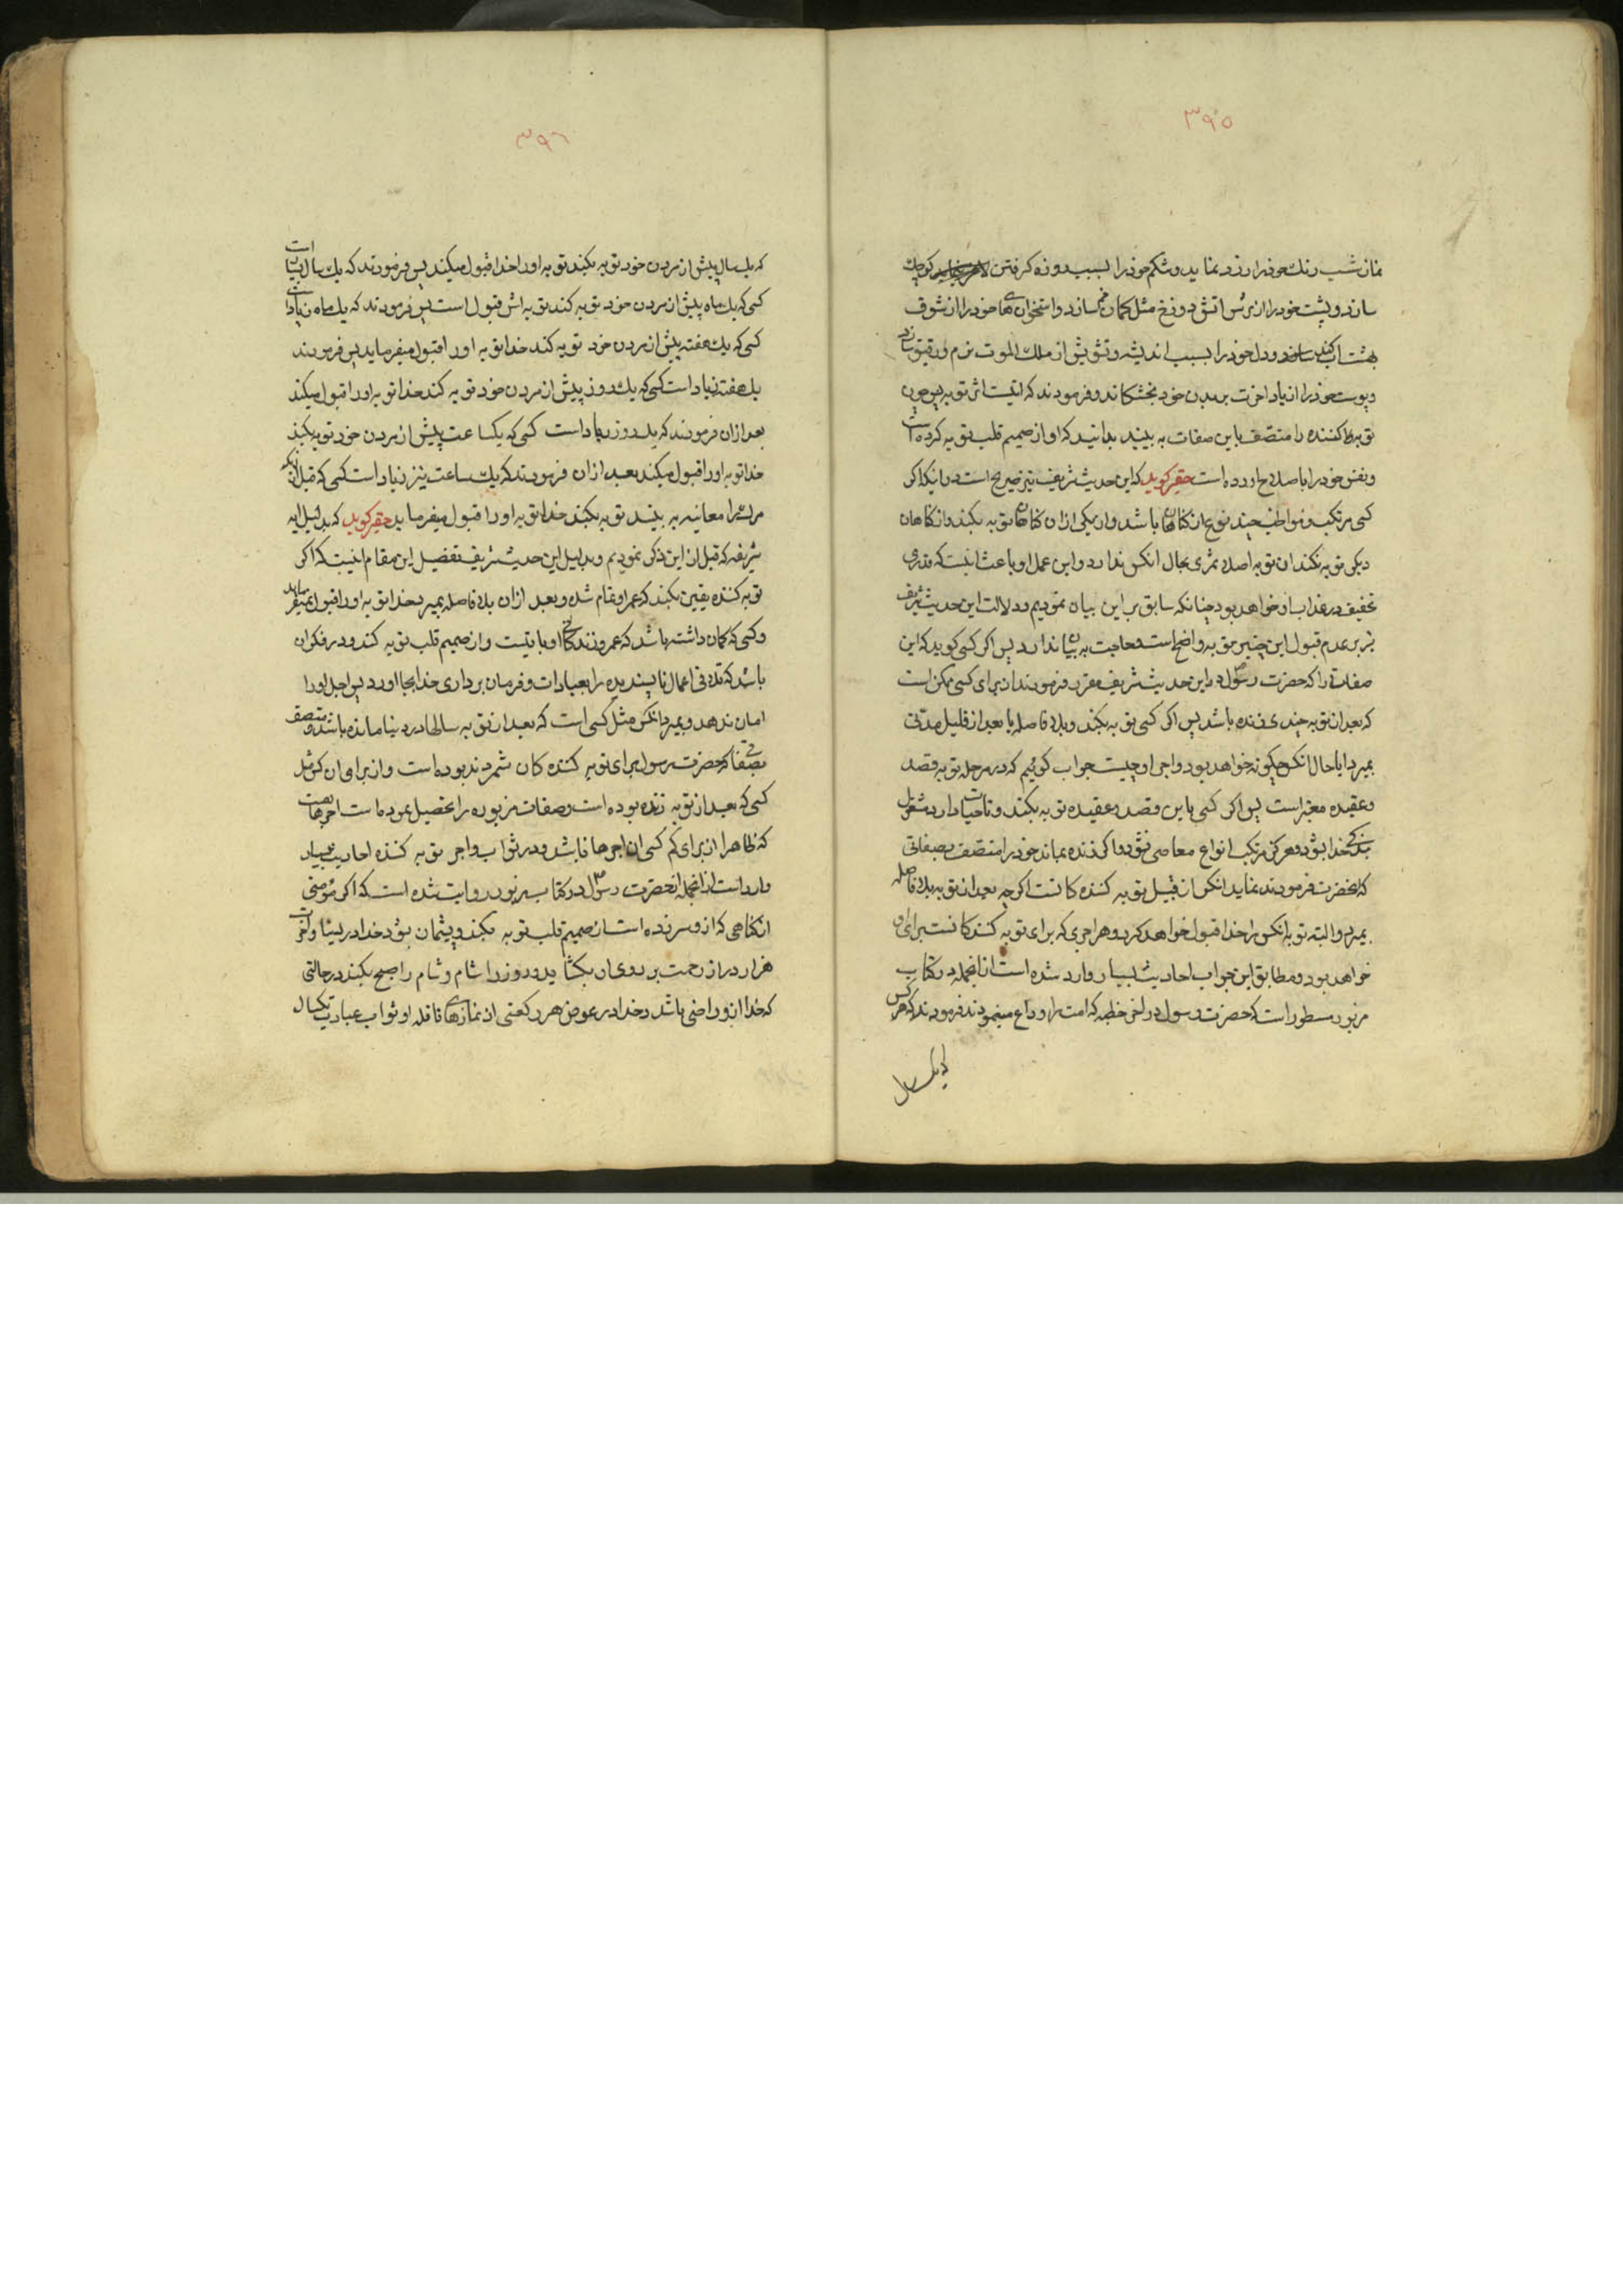 ۳۹۵
نماز شب رنك خود را زرد نماید و شكم خود را بسبب روزه كرفتن كوچك
سازد و پشت خود را از ترس اتش دوزخ مثل كمان خم سازد و استخوان های خود را از شوق
بهشت اب كند و دل خود را بسبب اندیشه و تشویش از ملك الموت نرم و رقیق سازد
و پوست خود را از یاد اخرت بر بدن خود بخشكاند و فرمودند كه اینست اثر توبه پس چون
توبه كننده را متصف باین صفات به بینید بدانید كه او از صمیم قلب توبه كرده است
و نفس خود را باصلاح اورده است حقیر كوید كه این حدیث شریف نیز صریح است در اینكه اكر
كسی مرتكب و مواظب چند نوع از كناهان باشد و از یكی از ان كناهان توبه بكند و از كناهان
دیكر توبه نكند ان توبه اصلا ثمری بحال انكس ندارد و این عمل او باعث اینست كه قدری
تخفیف در عذاب او خواهد بود چنانكه سابق بر این بیان نمودیم و دلالت این حدیث شریف
نیز بر عدم قبول این چنین توبه واضح است و حاجت به بیان ندارد پس اكر كسی كوید كه این
صفات را كه حضرت رسول در این حدیث شریف مقرر فرمودند از برای كسی ممكن است
كه بعد از توبه چندی زنده باشد پس اكر كسی توبه بكند و بلا فاصله یا بعد از قلیل مدتی
بمیرد ایا حال انكس چكونه خواهد بود و اجر او چیست جواب كوئیم كه در مرحله توبه قصد
و عقیده معتبر است پس اكر كسی باین قصد و عقیده توبه بكند و تا حیات دارد مشغول
بندكی خدا بشود و هركز مرتكب انواع معاصی نشود و اكر زنده بماند خود را متصف بصفاتی
كه انحضرت فرمودند نماید انكس از قبیل توبه كننده كانست اكرچه بعد از توبه بلا فاصله
بمیرد و البته توبه انكس را خدا قبول خواهد كرد و هر اجری كه برای توبه كننده كانست برای او
خواهد بود و مطابق این جواب احادیث بسیار وارد شده است از انجمله در كتاب
مزبور مسطور است كه حضرت رسول در اخر خطبه كه امت را وداع مینمودند فرمودند كه هر كس
كه یك سال
۳۹٦
كه یك سال پیش از مردن خود توبه بكند توبه او را خدا قبول میكند پس فرمودند كه یك سال بسیار است
كسی كه یك ماه پیش از مردن خود توبه كند توبه اش قبول است پس فرمودند كه یك ماه زیاد است
كسی كه یك هفته پیش از مردن خود توبه كند خدا توبه او را قبول میفرماید پس فرمودند
یك هفته زیاد است كسی كه یك روز پیش از مردن خود توبه كند خدا توبه او را قبول میكند
بعد از ان فرمودند كه یك روز زیاد است كسی كه یكساعت پیش از مردن خود توبه بكند
خدا توبه او را قبول میكند بعد از ان فرمودند كه یك ساعت نیز زیاد است كسی كه قبل از انكه
مرك را معاینه به بیند توبه بكند خدا توبه او را قبول میفرماید حقیر كوید كه بدلیل ایه
شریفه كه قبل از این ذكر نمودیم و بدلیل این حدیث شریف تفضیل این مقام اینست كه اكر
توبه كننده یقین بكند كه عمر او تمام شده و بعد از ان بلا فاصله بمیرد خدا توبه او را قبول نمیفرماید
و كسی كه كمان داشته باشد كه عمر و زندكانی او باقیست و از صمیم قلب توبه كند و در فكر ان
باشد كه تلافی اعمال ناپسندیده را بعبادات و فرمان برداری خدا بجا اورد پس اجل او را
امان ندهد و بمیرد انكس مثل كسی است كه بعد از توبه سالها در دنیا مانده باشد و متصف
بصفاتی كه حضرت رسول برای توبه كننده كان شمردند بوده است و از برای ان كس مثل
كسی كه بعد از توبه زنده بوده است و صفات مزبوره را تحصیل نموده است اجرها هست
كه ظاهرا از برای كم كسی ان اجرها باشد و در ثواب و اجر توبه كننده احادیث بسیار
وارد است از انجمله انحضرت رسول در كتاب مزبور روایت شده است كه اكر مؤمنی
از كناهی كه از او سر زده است از صمیم قلب توبه بكند و پشیمان بشود خدا در دنیا و اخرت
هزار در از رحمت بر روی ان بكشاید و روز را شام و شام را صبح بكند در حالتی
كه خدا از او راضی باشد و خدا در عوض هر ركعتی از نمازهای نافله او ثواب عبادت یكسال